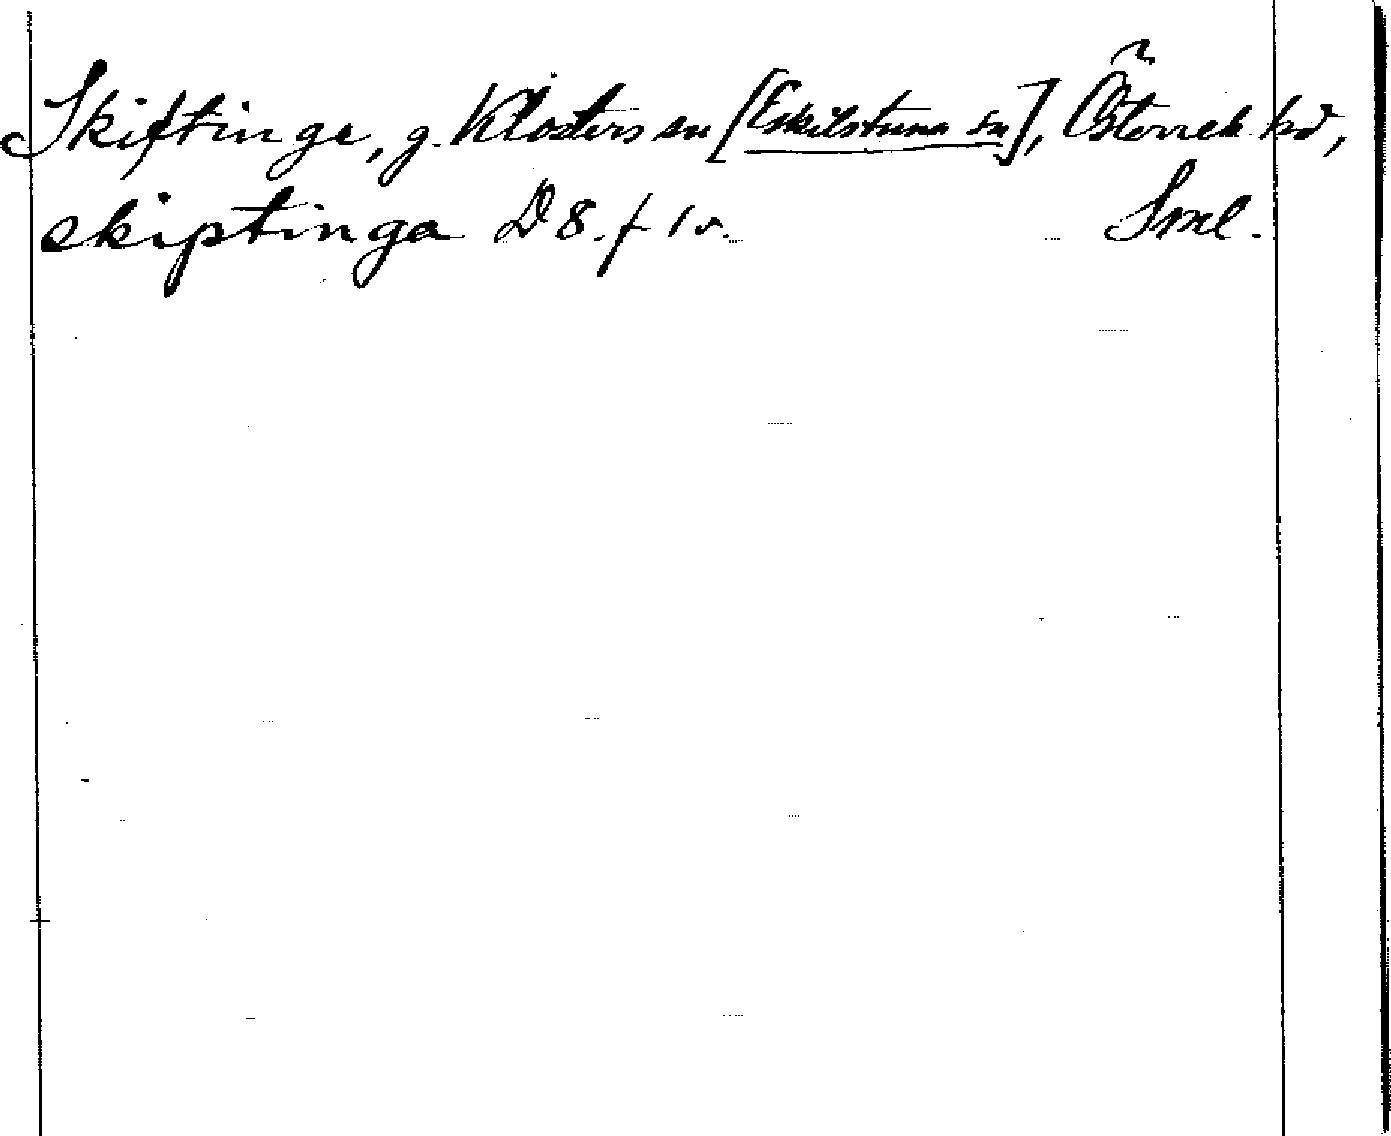 Skiftinge, g. Klosters sn [Eskilstuna sn], Österrek. hd,
skiptinga D 8. f 1 v. Sml.